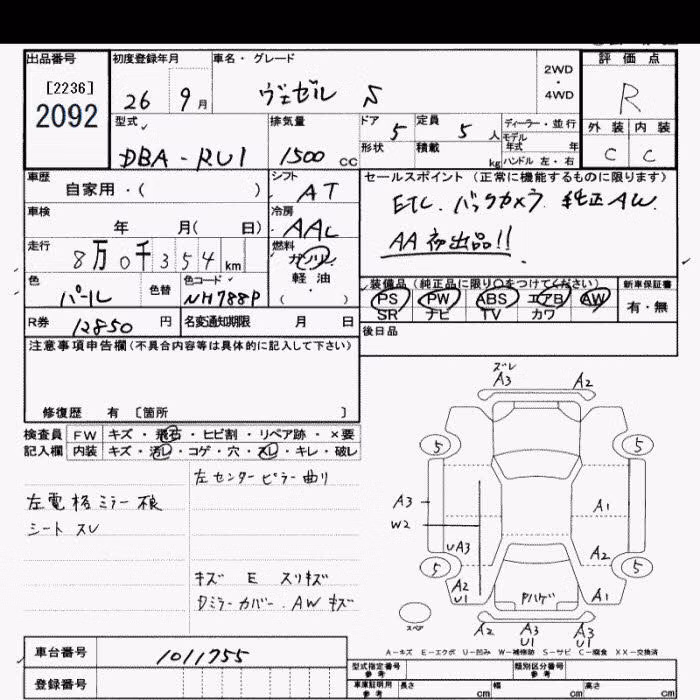 出品番号 初度登録年月 車名・グレード 2WD・4WD 評価点
[2236]
2092
26 9月 ヴェゼル S R
型式 排気量 ドア 定員 ディーラー・並行 外装 内装
DBA-RU1 1500cc 5 5人 モデル年式 年 C C
形状 積載 kg ハンドル 左・右
車歴 シフト セールスポイント (正常に機能するものに限ります)
自家用・( ) AT ETC. バックカメラ. 純正AW.
車検 冷房
年 月( 日) AAC AA初出品!!
走行 燃料
8万0千354km ガソリン
軽油
( )
色 色替 色コード 装備品(純正品に限り○をつけてください) 新車保証書
パール NH788P PS PW ABS エアB AW 有・無
SR ナビ TV カワ
R券 12850円 名変通知期限 月 日 後日品
注意事項申告欄(不具合内容等は具体的に記入して下さい)
修復歴 有 〔箇所 〕
検査員 FW キズ・飛石・ヒビ割・リペア跡・×要
記入欄 内装 キズ・汚レ・コゲ・穴・スレ・キレ・破レ
左センターピラー曲り
左電格ミラー不良
シート スレ
キズ E スリキズ
ミラーカバー. AWキズ
ズレ
A3 A2
5 5
A3 A1
W2
UA3 A2
5 5
A2 U1 Pハゲ A1
スペア
A2 A3 U1 A3 U1
A-キズ E-エクボ U-凹み W-補修跡 S-サビ C-腐食 XX-交換済
車台番号 1011755
登録番号
型式指定番号 参考 類別区分番号 参考
車庫証明用 参考 長さ cm 幅 cm 高さ cm